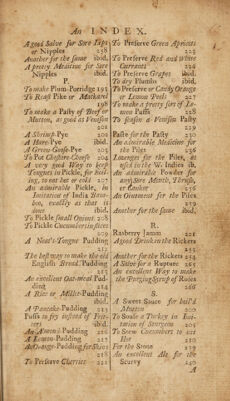 An INDEX.
A good Salve for Sore Lips
or Nipples 258
Another for the same ibid.
A pretty Medicine for Sore
Nipples ibid.
P.
To make Plum-Porridge 192
To Roast Pike or Mackarel
198
To make a Pasty of Beef or
Mutton, as good as Venison
201
A Shrimp-Pye
A Hare-Pye ibid.
A Green-Goose-Pye 205
To Pot Cheshire-Cheese 204
A very good Way to keep
Tongues in Pickle, for boiling,
to eat hot or cold
An admirable Pickle, in
Imitation of India Bamboo,
exactly as that is
done ibid.
To Pickle small Onions 208
To Pickle Cucumbers in slices
209
A Neat's-Tongue Pudding
The best way to make the old
English Bread Pudding
213
An excellent Oat-meal Pudding
214
A Rice or Millet-Pudding
ibid.
A Pancake-Pudding 213
Puffs to fry instead of Fritters
ibid.
An Almond Pudding 216
A Lemon-Pudding 217
An Orange-Pudding
218
To Preserve Cherries 221
To Preserve Green Apricots
223
To Preserve Red and white
Currants 224
To Preserve Grapes ibid.
To dry Plumbs ibid.
To Preserve or Candy Orange
or Lemon Peels 227
To make a pretty sort of Lemon
Puffs 228
To season a Venison Pasty
229
Paste for the Pasty 230
An admirable Medicine for
the Piles 236
Lozenges for the Piles, as
used in the W. Indies ib.
An admirable Powder for
any Sore Mouth, Thrush,
or Canker 236
An Ointment for the Piles
239
Another for the same ibid.
R.
Rasberry Jamm 221
A good Drink in the Rickets
Another for the Rickets 254
A Salve for a Rupture 265
An excellent Way to make
the Purging Syrup of Roses
266
S.
A Sweet Sauce for boil'd
Mutton 200
To Souse a Turkey in Imitation
of Sturgeon 205
To Stew Cucumbers to eat
Hot 210
For the Stone 239
An excellent Ale for the
Scurvy 240
A